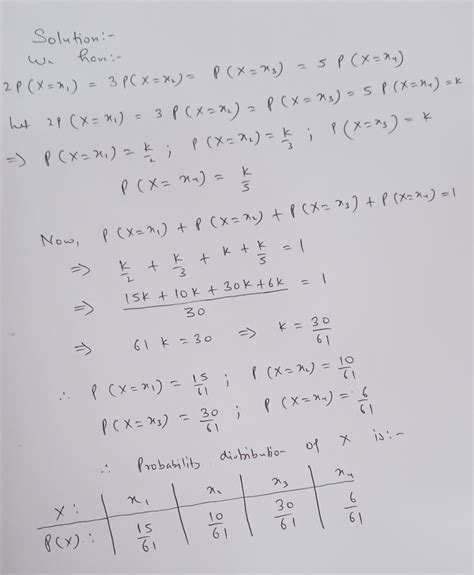 Solution:-
We have:-
2P(X=x₁) = 3P(X=x₂) = P(X=x₃) = 5 P(X=x₄)
let 2P(X=x₁) = 3 P(X=x₂) = P(X=x₃) = 5 P(X=x₄) = k
⇒ P(X=x₁) = k/2 ; P(X=x₂) = k/3 ; P(X=x₃) = k
P(X=x₄) = k/5
Now, P(X=x₁) + P(X=x₂) + P(X=x₃) + P(X=x₄) = 1
⇒ k/2 + k/3 + k + k/5 = 1
⇒ (15k + 10k + 30k + 6k)/30 = 1
⇒ 61 k = 30 ⇒ k = 30/61
∴ P(X=x₁) = 15/61 ; P(X=x₂) = 10/61
P(X=x₃) = 30/61 ; P(X=x₄) = 6/61
∴ Probability distribution of X is:-
X : | x₁ | x₂ | x₃ | x₄
P(X) : | 15/61 | 10/61 | 30/61 | 6/61